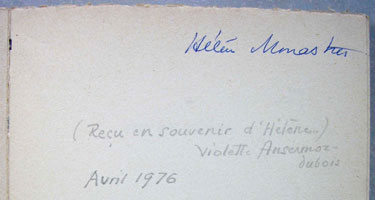 Hélène Monastier
(Reçu en souvenir d'Hélène...)
Violette Ansermoz-
dubois
Avril 1976